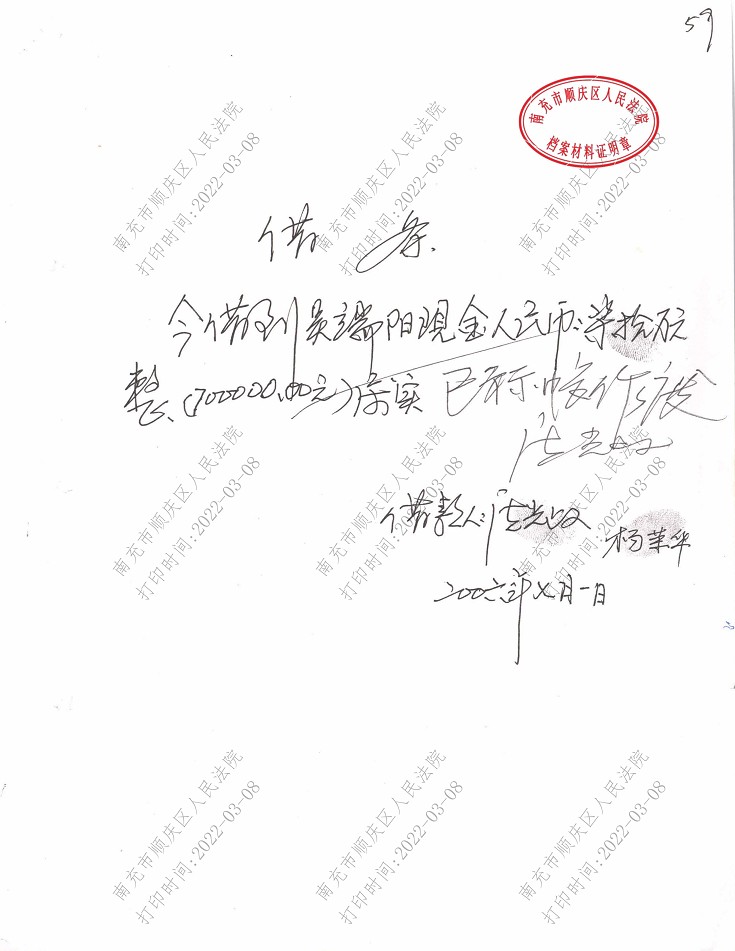 59
南充市顺庆区人民法院
档案材料证明章
借条.
今借到吴端阳现金人民币:柒拾万
整.(700000.00元)属实 已
借款人:
杨荣华
二00六年七月一日
南充市顺庆区人民法院
打印时间:2022-03-08
南充市顺庆区人民法院
打印时间:2022-03-08
南充市顺庆区人民法院
打印时间:2022-03-08
南充市顺庆区人民法院
打印时间:2022-03-08
南充市顺庆区人民法院
打印时间:2022-03-08
南充市顺庆区人民法院
打印时间:2022-03-08
南充市顺庆区人民法院
打印时间:2022-03-08
南充市顺庆区人民法院
打印时间:2022-03-08
南充市顺庆区人民法院
打印时间:2022-03-08